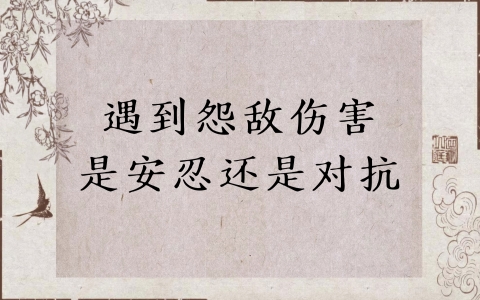 遇到怨敌伤害
是安忍还是对抗